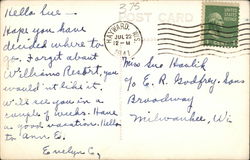 Hello Sue —
375
POST CARD
Hope you have
decided where to
go. Forget about
Williams Resort, you
would n't like it.
We'll see you in a
couple of weeks. Have
a good vacation. Hello
to Ann E.
Evelyn C.
HAYWARD, WIS.
JUL 22
12-M
1941
Miss Sue
c/o E. R. Godfrey & Sons
Broadway
Milwaukee, Wi